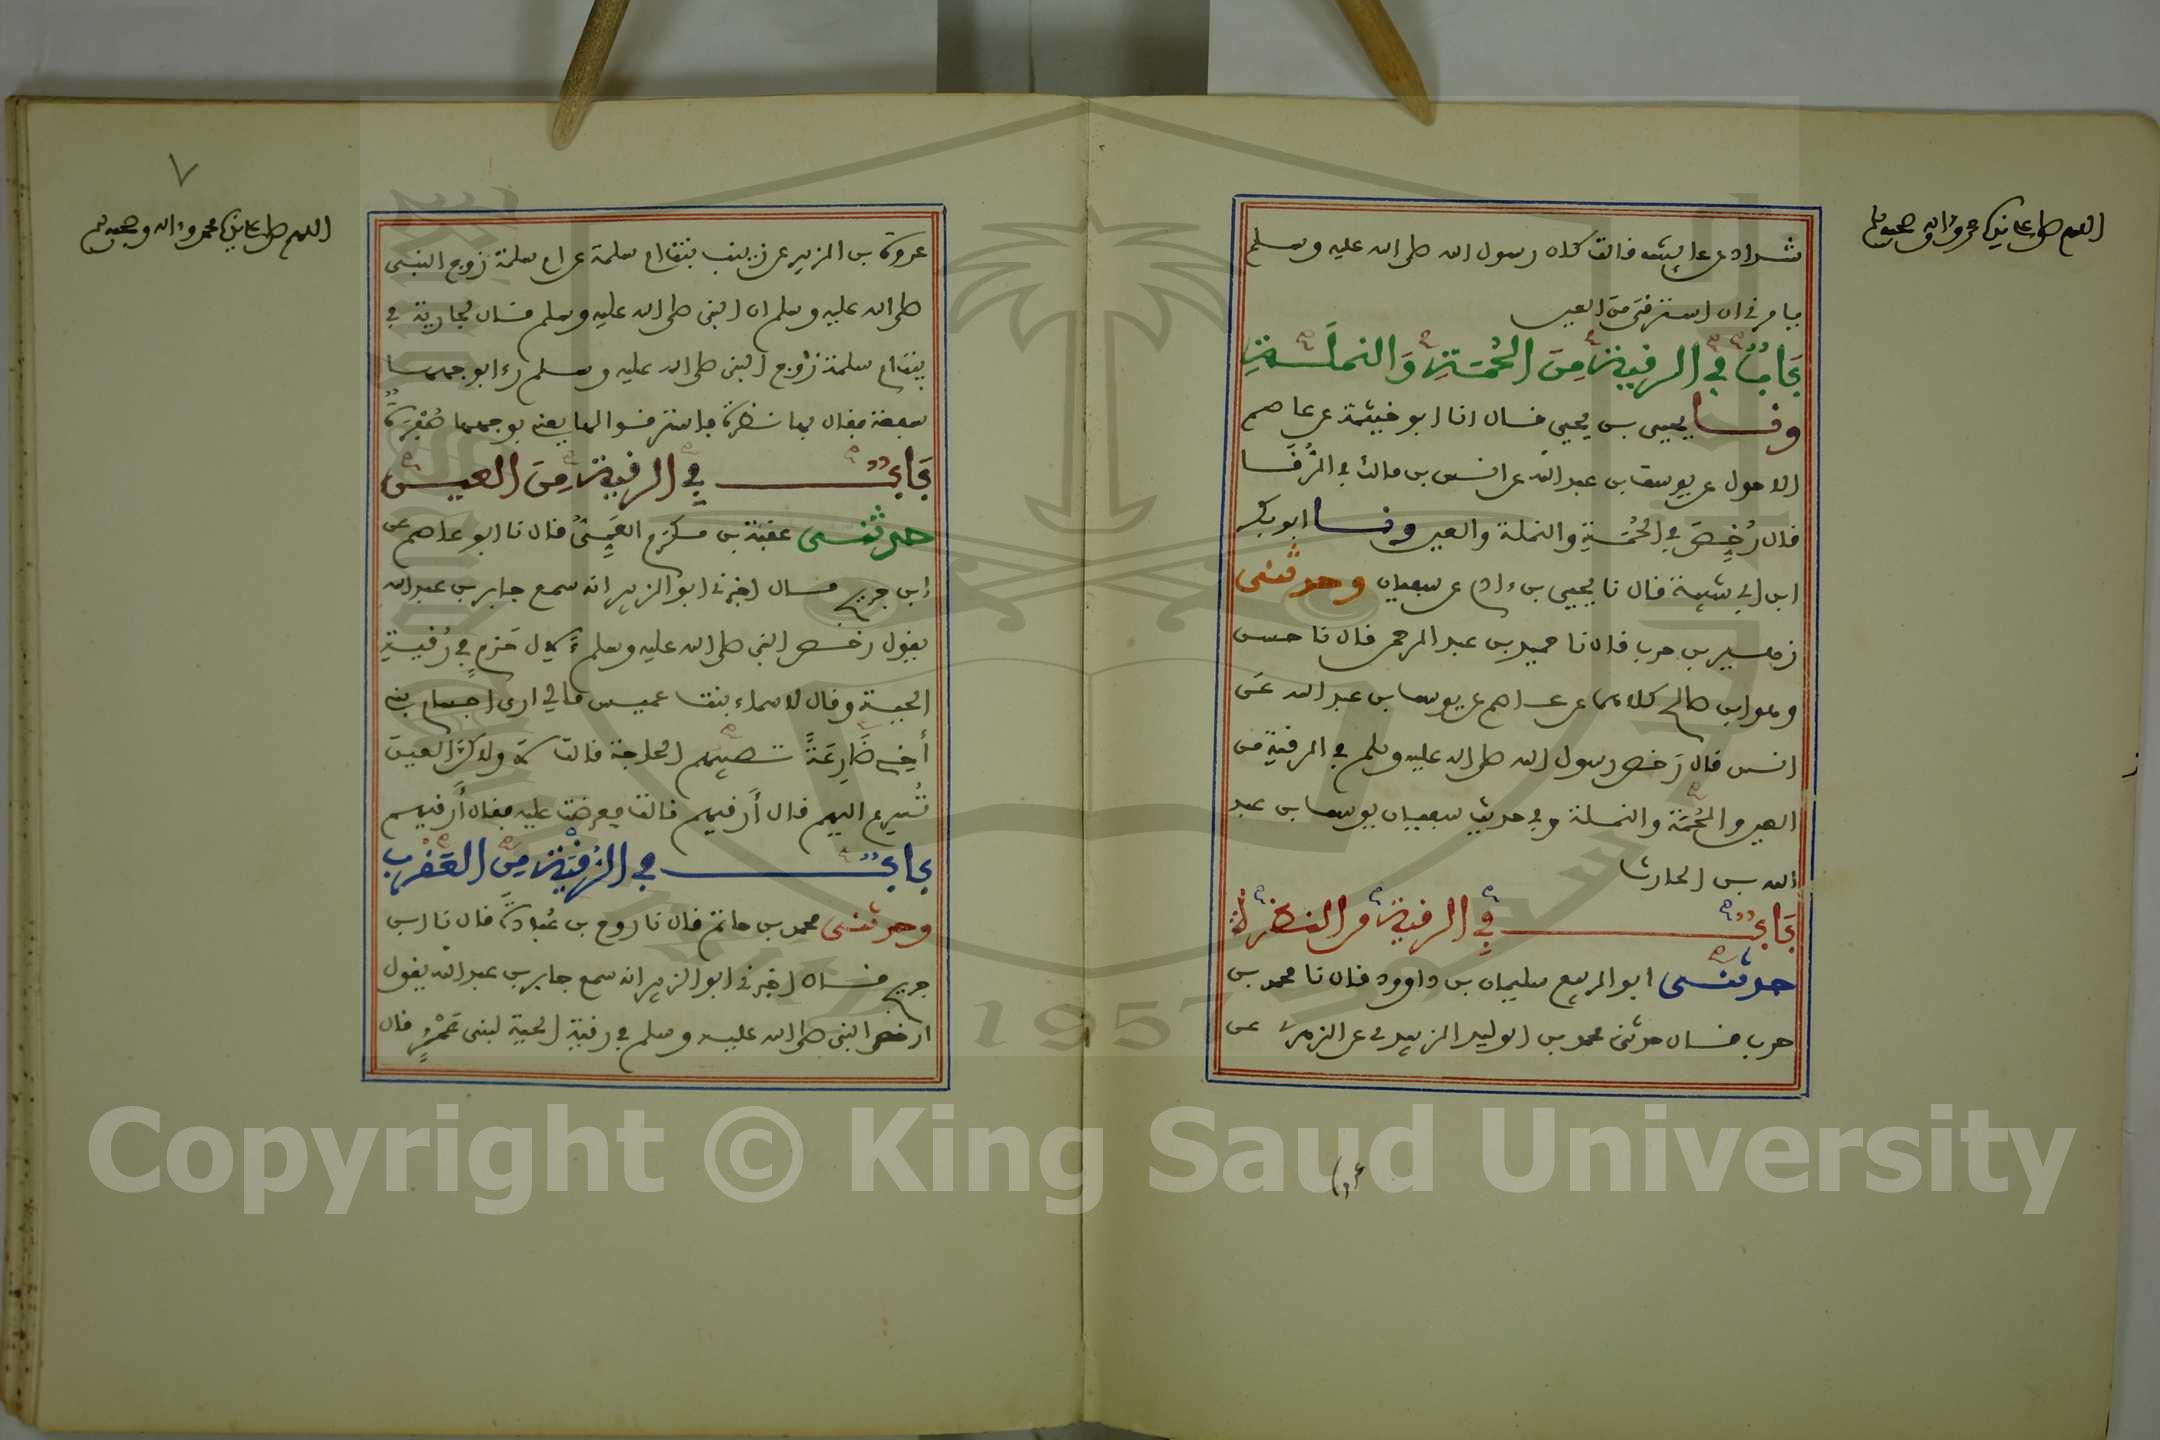 اللهم صل على نبينا محمد وآله وصحبه وسلم
شداد عن عايشة قالت كان رسول الله صلى الله عليه وسلم
يامرني ان استرقي من العين
بَابٌ في الرقية مِنَ الحُمَةِ وَالنملَةِ
ونا يحيى بن يحيى قال انا ابو خيثمة عن عاصم
الاحول عن يوسف بن عبد الله عن انس بن مالك في الرُّقَا
قال رُخِّصَ في الحُمَةِ والنملة والعين ونا ابو بكر
ابن ابي شيبة قال نا يحيى بن ءادم عن سفيان وحدثني
زهير بن حرب قال نا حميد بن عبد الرحمن قال نا حسن
وهو ابن صالح كلاهما عن عاصم عن يوسف بن عبد الله عن
انس قال رَخص رسول الله صلى الله عليه وسلم في الرقية من
العين والحُمَة والنملة وفي حديث سفيان يوسف بن عبد
الله بن الحارث
بَابٌ في الرقية من النظرة
حدثني ابو الربيع سليمان بن داوود قال نا محمد بن
حرب قال حدثني محمد بن الوليد الزبيدي عن الزهري عن
عروة
٧
اللهم صل على نبينا محمد وءاله وصحبه وسلم
عروة بن الزبير عن زينب بنت ام سلمة عن ام سلمة زوج النبي
صلى الله عليه وسلم ان النبي صلى الله عليه وسلم قال لجارية في
بيت ام سلمة زوج النبي صلى الله عليه وسلم رءا بوجهها
سفعة فقال بها نظرة فاسترقوا لها يعني بوجهها صُفْرَةً
بَابٌ في الرقية مِنَ العين
حدثني عقبة بن مكرم العَمِّيُّ قال نا ابو عاصم عن
ابن جريج قال اخبرني ابو الزبير انه سمع جابر بن عبد الله
يقول رخص النبي صلى الله عليه وسلم لآل حَزمٍ في رُقيةِ
الحية وقال لاسماء بنت عميس مالي ارى اجسام بني
أخي ضَارِعَةً تصيبهم الحاجة قالت لا ولاكن العين
تُسرع اليهم قال أَرقيهم قالت فعرضت عليه فقال أَرقيهم
باب في الرُقْيَة مِنَ العَقْرب
وحدثني محمد بن حاتم قال نا روح بن عُبادَة قال نا ابن
جريج قال اخبرني ابو الزبير انه سمع جابر بن عبد الله يقول
ارخص النبي صلى الله عليه وسلم في رقية الحية لبني عَمْرٍو قال
1957
Copyright © King Saud University